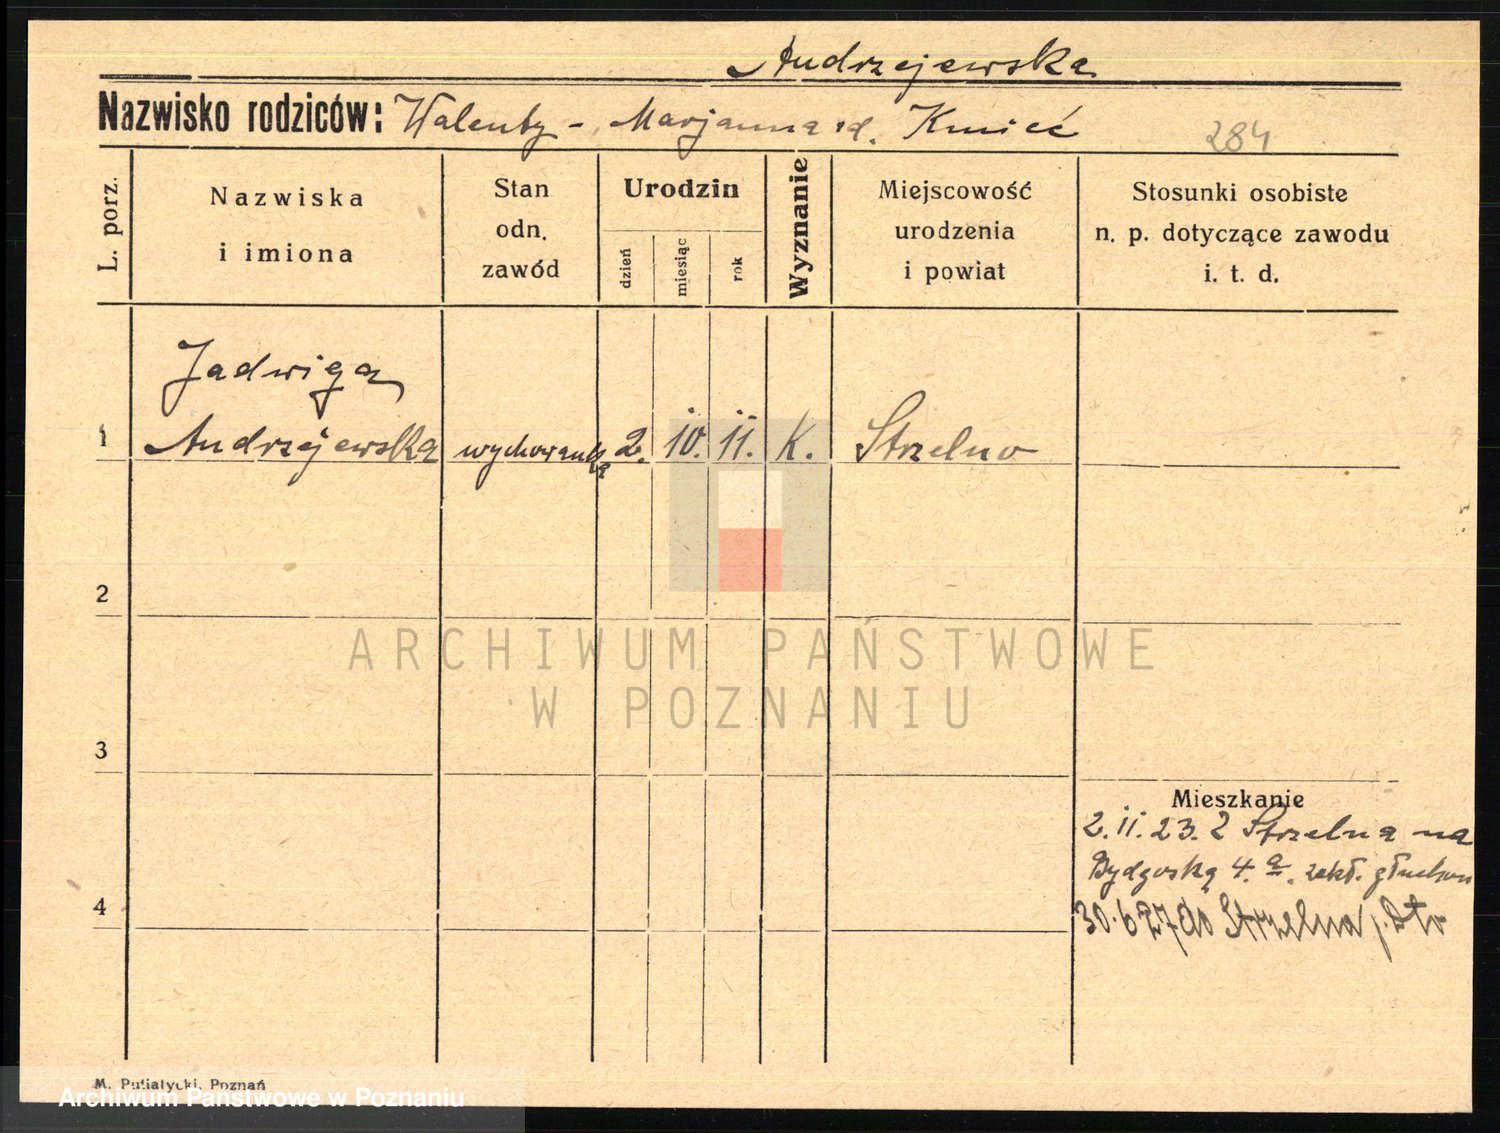 Andrzejewska
Nazwisko rodziców: Walenty - Marjanna rd. Kmieć
284
L. porz.
Nazwiska
i imiona
Stan
odn.
zawód
Urodzin
dzień
miesiąc
rok
Wyznanie
Miejscowość
urodzenia
i powiat
Stosunki osobiste
n. p. dotyczące zawodu
i. t. d.
Jadwiga
1 Andrzejewska wychowanka 2. 10. 11. K. Strzelno
2
3
4
ARCHIWUM PAŃSTWOWE
W POZNANIU
Mieszkanie
2.11.23. z Strzelna na
Bydgoską 4.a. zakł. głuchon
30.6 27 do Strzelna p.
M. Putiatycki, Poznań
Archiwum Państwowe w Poznaniu